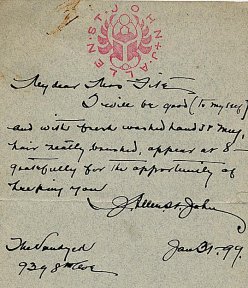 J. ALLEN ST. JOHN
My dear Miss
I will be good (to myself)
and with fresh washed hands & mug,
hair neatly brushed, appear at 8
gratefully for the opportunity of
keeping you
J. Allen St. John
The Vandyck
939 8th Ave
Jan 31. 99.